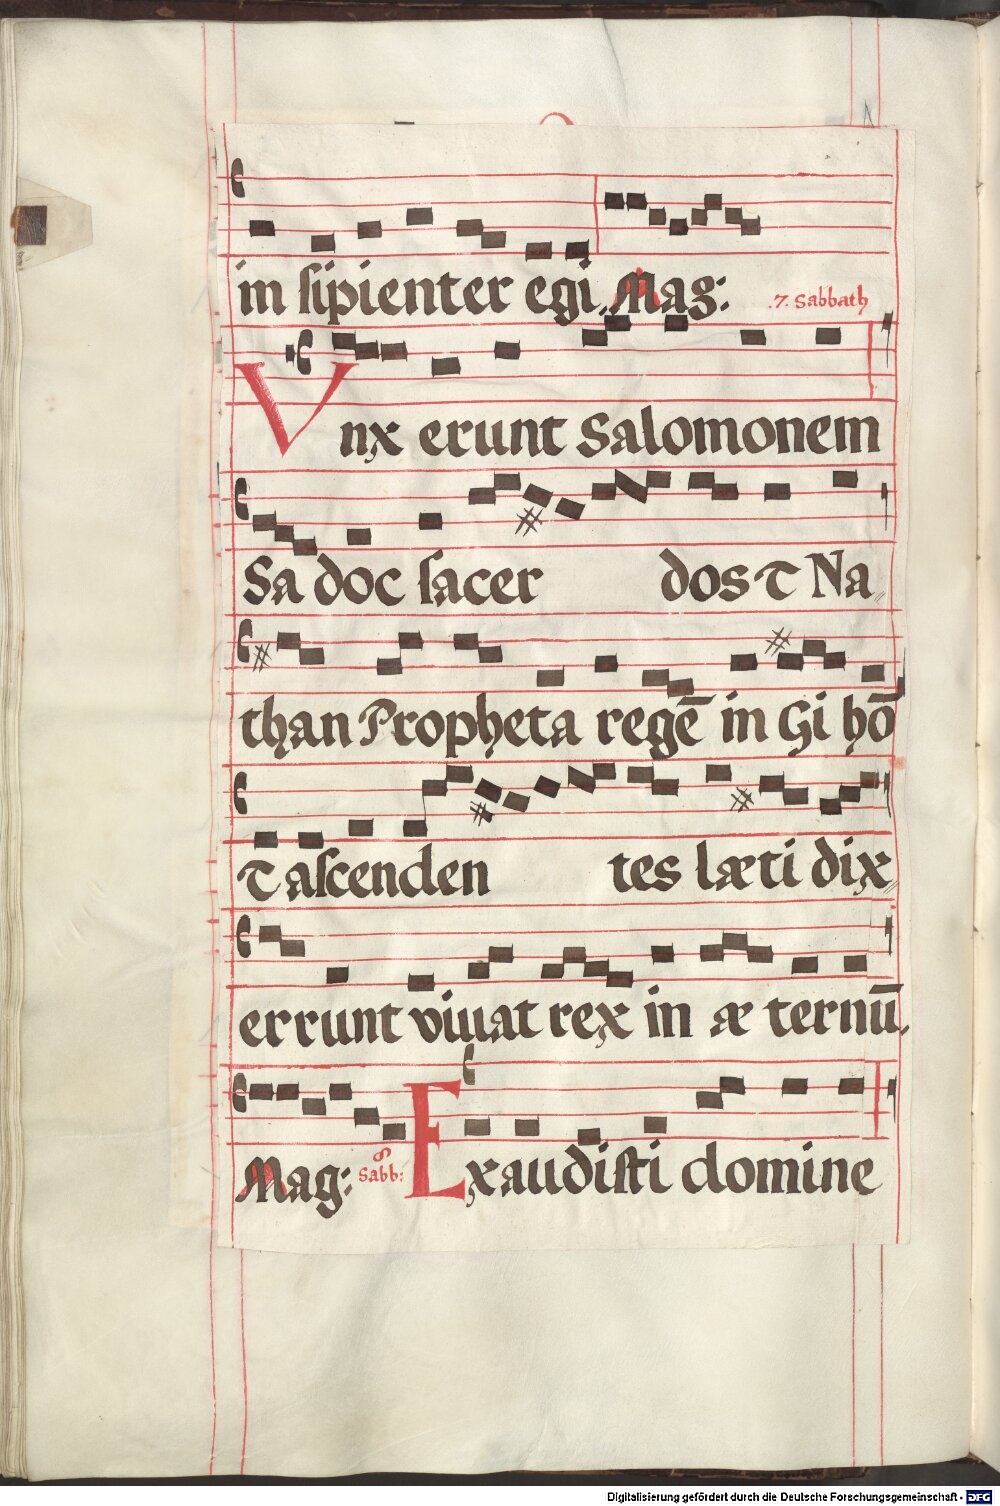 in sipienter egi. Mag: .7. Sabbath
Vnx erunt Salomonem
Sa doc sacer dos τ Na
than Propheta regē in Gi hō
τ ascenden tes læti dix
errunt viuat rex in æ ternū.
Mag: 8 Sabb: Exaudisti domine
Digitalisierung gefördert durch die Deutsche Forschungsgemeinschaft - DFG